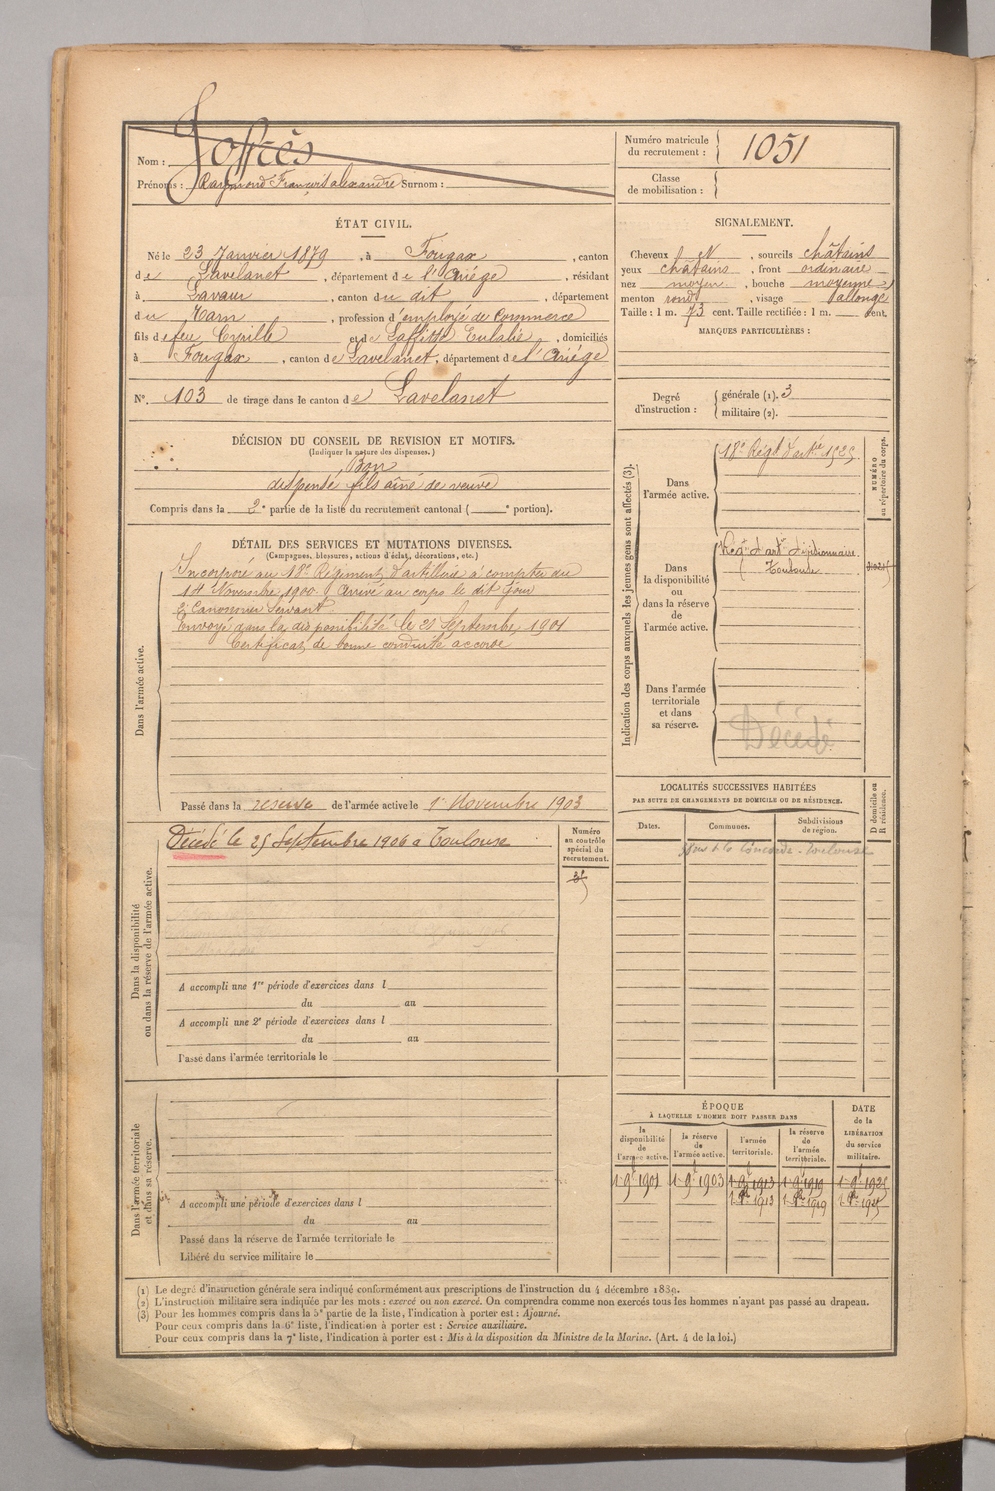 Nom : Joffrès
Prénoms : Raymond François alexandre Surnom :
Numéro matricule du recrutement : 1051
Classe de mobilisation :
ÉTAT CIVIL.
Né le 23 Janvier 1879, à Fougax, canton
de Lavelanet, département de l'Ariége, résidant
à Lavaur, canton du dit, département
du Tarn, profession d'employé de Commerce
fils de feu Cyrille et de Laffitte Eulalie, domiciliés
à Fougax, canton de Lavelanet, département de l'Ariége
N°. 103 de tirage dans le canton de Lavelanet
SIGNALEMENT.
Cheveux, sourcils châtains
yeux châtains, front ordinaire
nez moyen, bouche moyenne
menton rond, visage allongé
Taille : 1 m. 73 cent. Taille rectifiée : 1 m. cent.
MARQUES PARTICULIÈRES :
Degré d'instruction :
générale (1). 3
militaire (2).
DÉCISION DU CONSEIL DE REVISION ET MOTIFS.
(Indiquer la nature des dispenses.)
Bon
dispensé fils aîné de veuve
Compris dans la 2e partie de la liste du recrutement cantonal ( e portion).
DÉTAIL DES SERVICES ET MUTATIONS DIVERSES.
(Campagnes, blessures, actions d'éclat, décorations, etc.)
Dans l'armée active.
Incorporé au 18e Régiment d'artillerie à compter du
14 Novembre 1900. Arrivé au corps le dit jour
2e Canonnier Servant
Envoyé dans la disponibilité le 21 Septembre 1901
Certificat de bonne conduite accordé
Passé dans la réserve de l'armée active le 1er Novembre 1903
Indication des corps auxquels les jeunes gens sont affectés (3).
NUMÉRO au répertoire du corps.
Dans l'armée active.
18e Régt d'artie
Dans la disponibilité ou dans la réserve de l'armée active.
Toulouse
Dans l'armée territoriale et dans sa réserve.
Décédé
Dans la disponibilité ou dans la réserve de l'armée active.
Décédé le 25 Septembre 1906 à Toulouse
Numéro au contrôle spécial du recrutement.
A accompli une 1re période d'exercices dans l
du au
A accompli une 2e période d'exercices dans l
du au
Passé dans l'armée territoriale le
LOCALITÉS SUCCESSIVES HABITÉES
PAR SUITE DE CHANGEMENTS DE DOMICILE OU DE RÉSIDENCE.
D domicile ou R résidence.
Dates. Communes. Subdivisions de région.
rue de la Concorde - Toulouse
Dans l'armée territoriale et dans sa réserve.
A accompli une période d'exercices dans l
du au
Passé dans la réserve de l'armée territoriale le
Libéré du service militaire le
ÉPOQUE
À LAQUELLE L'HOMME DOIT PASSER DANS
DATE de la LIBÉRATION du service militaire.
la disponibilité de l'armée active. la réserve de l'armée active. l'armée territoriale. la réserve de l'armée territoriale.
1-9bre 1901 1-9bre 1903 1-9bre 1913 1-9bre 1919 1-9bre 1925
(1) Le degré d'instruction générale sera indiqué conformément aux prescriptions de l'instruction du 4 décembre 1889.
(2) L'instruction militaire sera indiquée par les mots : exercé ou non exercé. On comprendra comme non exercés tous les hommes n'ayant pas passé au drapeau.
(3) Pour les hommes compris dans la 5e partie de la liste, l'indication à porter est : Ajourné.
Pour ceux compris dans la 6e liste, l'indication à porter est : Service auxiliaire.
Pour ceux compris dans la 7e liste, l'indication à porter est : Mis à la disposition du Ministre de la Marine. (Art. 4 de la loi.)